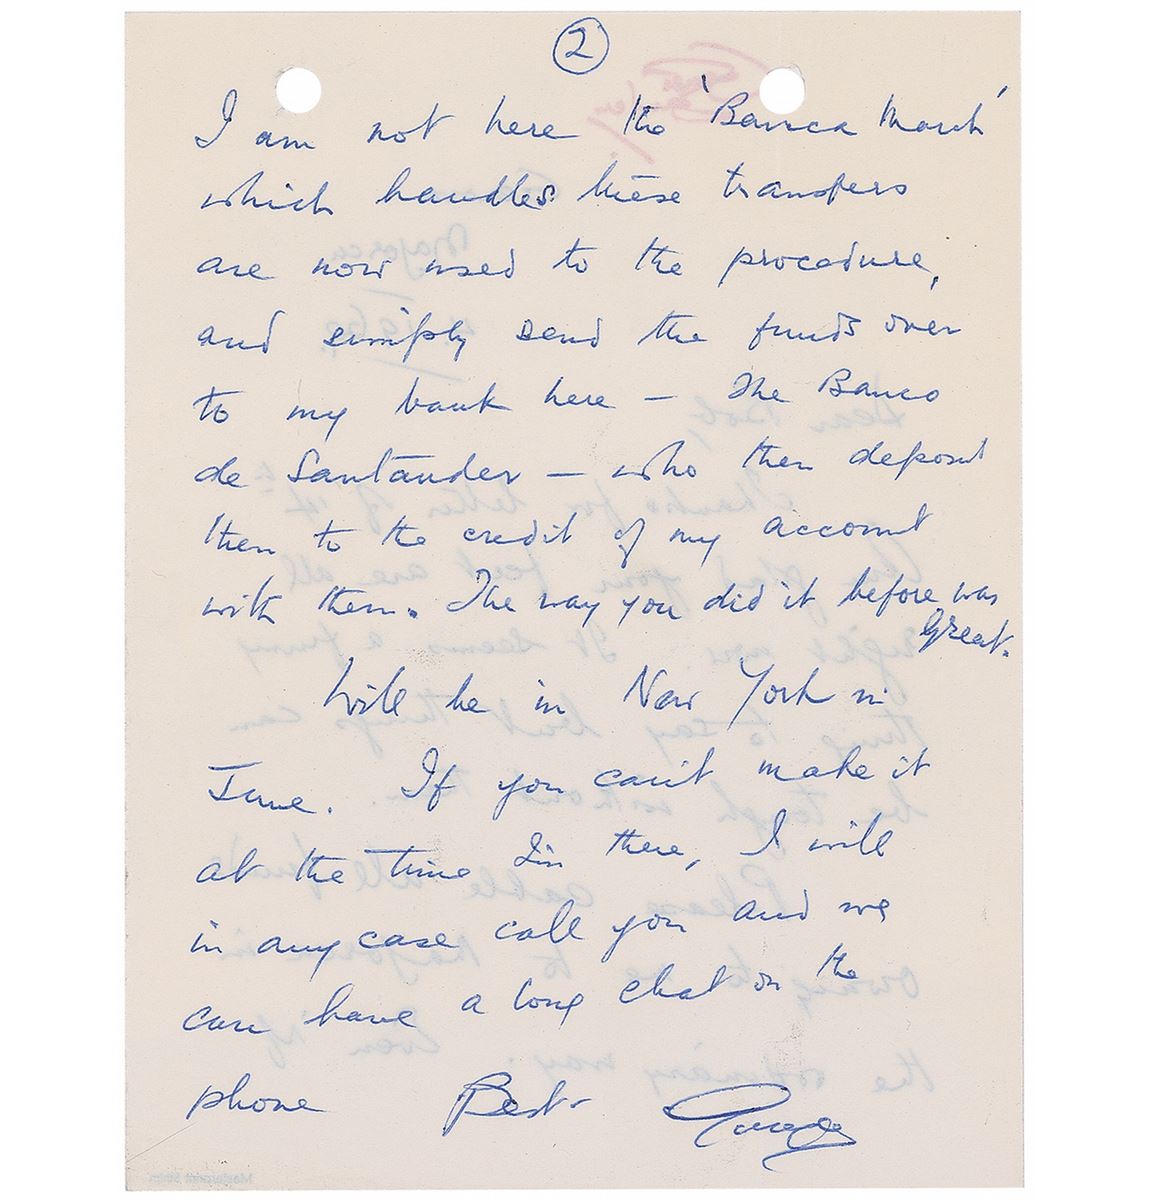 2
I am not here the 'Banca March'
which handles these transfers
are now used to the procedure,
and simply send the funds over
to my bank here – The Banco
de Santander – who then deposit
them to the credit of my account
with them. The way you did it before was
Great.
Will be in New York in
June. If you can't make it
at the time I'm there, I will
in any case call you and we
can have a long chat on the
phone Best George